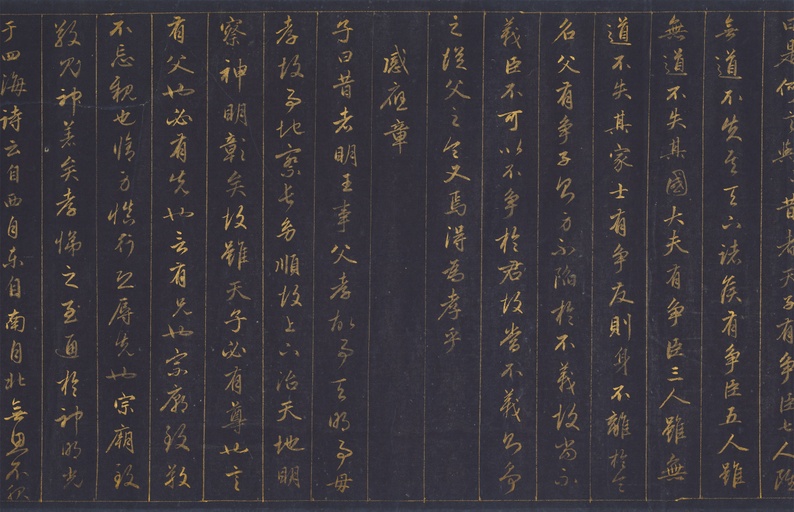 曰是何言與昔者天子有争臣七人雖
無道不失其天下諸侯有争臣五人雖
無道不失其國大夫有争臣三人雖無
道不失其家士有争友則身不離於令
名父有争子則身不陷於不義故當不
義臣不可以不争於君故當不義則争
之從父之令又焉得為孝乎
感應章
子曰昔者明王事父孝故事天明事母
孝故事地察長幼順故上下治天地明
察神明彰矣故雖天子必有尊也言
有父也必有先也言有兄也宗廟致敬
不忘親也脩身慎行恐辱先也宗廟致
敬鬼神著矣孝悌之至通於神明光
于四海詩云自西自東自南自北無思不服